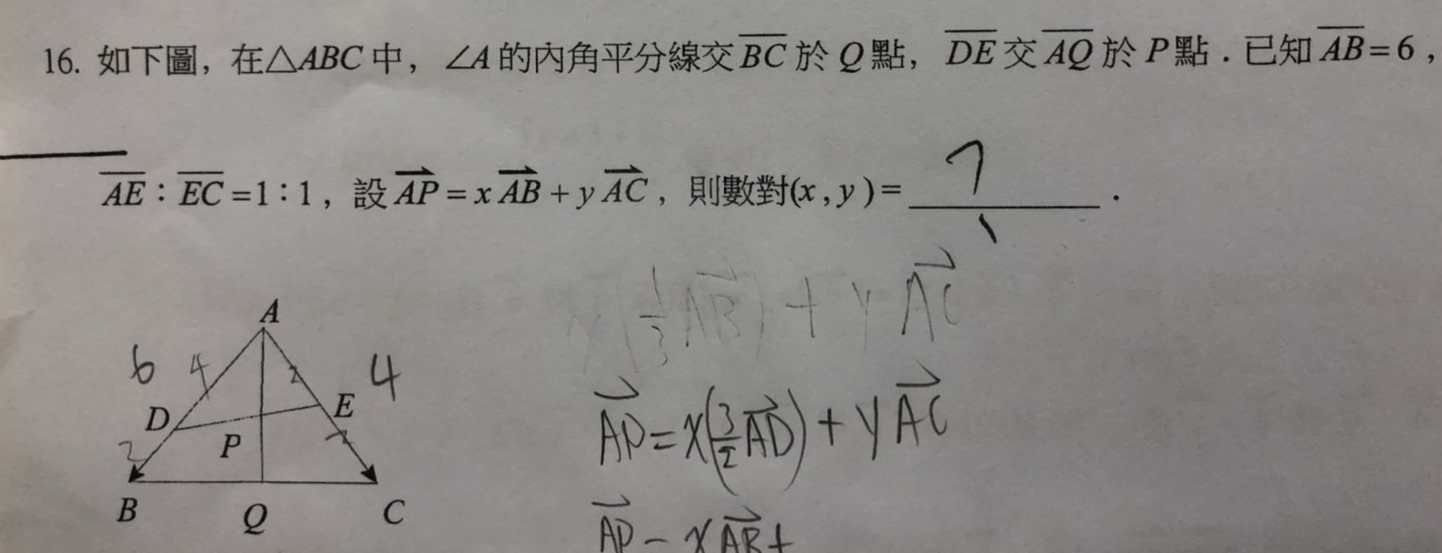 16. 如下圖，在△ABC 中，∠A 的內角平分線交 BC 於 Q 點，DE 交 AQ 於 P 點．已知 AB=6，
AE：EC=1：1，設 AP = x AB + y AC，則數對(x , y )= ?
x(1/3 AB) + y AC
A
6 4 2 4
D E
P
2 2
B Q C
AP = x(3/2 AD) + y AC
AP = x AB +